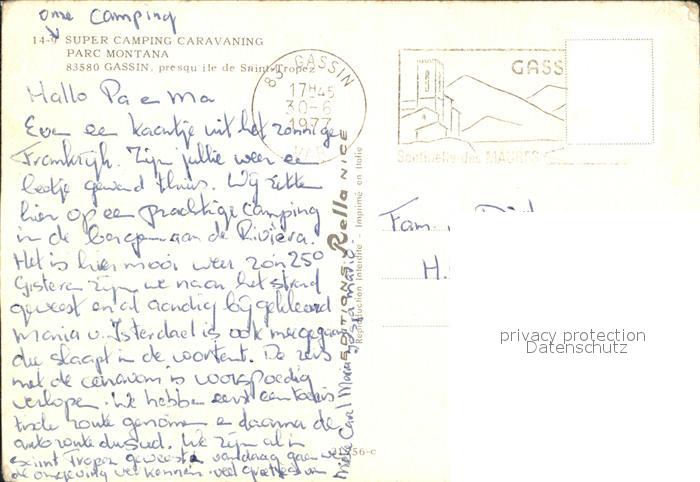 ome camping
14-9 SUPER CAMPING CARAVANING
PARC MONTANA
83580 GASSIN, presqu'ile de Saint-Tropez
83 GASSIN
17H45
30-6
1977
VAR
GASS
Sentinelle des MAURES
Hallo Pa en Ma
Even een kaartje uit het zonnige
Frankrijk. Zijn jullie weer een
beetje gewend thuis. Wij zitten
hier op een prachtige camping
in de bergen aan de Rivièra.
Het is hier mooi weer zo'n 25°
Gisteren zijn we naar het strand
geweest en al aardig bijgekleurd
Maria v. IJsterdael is ook meegegaan
die slaapt in de voortent. De reis
met de caravan is voorspoedig
verlopen. We hebben eerst een toeris
tische route genomen en daarna de
autoroute du sud. We zijn al in
Saint Tropez geweest en vandaag gaan we
de omgeving verkennen. veel groetjes van
Carel Maria
EDITIONS Rella NICE
Reproduction Interdite - Imprimé en Italie
Fam.
H.
56-c
privacy protection
Datenschutz